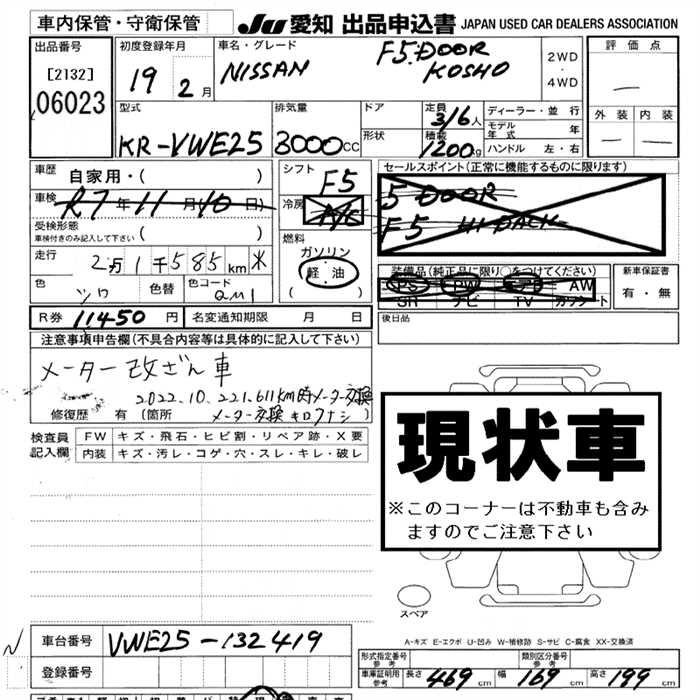 車内保管・守衛保管
JU 愛知 出品申込書 JAPAN USED CAR DEALERS ASSOCIATION
出品番号 [2132] 06023
初度登録年月 19年 2月
車名・グレード NISSAN F5.DOOR KOSHO
2WD ・ 4WD
評価点 —
外装 — 内装 —
型式 KR-VWE25
排気量 3000cc
ドア
形状
定員 3/6人
積載 1200kg
ディーラー・並行
モデル年式 年
ハンドル 左・右
車歴 自家用・( )
車検 R7年11月10日)
受検形態 車検付きのみ記入して下さい ( )
走行 2万1千585km ✕
色 シロ 色替 色コード QM1
シフト F5
冷房 A/C
燃料 ガソリン 軽油 ( )
セールスポイント(正常に機能するものに限ります)
5 DOOR
F5 HI BACK
装備品(純正品に限り○をつけてください)
PS PW AW
SR ナビ TV カワシート
新車保証書 有・無
R券 11450円 名変通知期限 月 日
後日品
注意事項申告欄(不具合内容等は具体的に記入して下さい)
メーター改ざん車
2022.10.221.611km時メーター交換
メーター交換キロフナシ
修復歴 有 (箇所
検査員記入欄 FW キズ・飛石・ヒビ割・リペア跡・X要
内装 キズ・汚レ・コゲ・穴・スレ・キレ・破レ
現状車
※このコーナーは不動車も含み
ますのでご注意下さい
スペア
A-キズ E-エクボ U-凹み W-補修跡 S-サビ C-腐食 XX-交換済
車台番号 VWE25-132419
登録番号
形式指定番号 参考 類別区分番号 参考
車庫証明用 参考 長さ 469cm 幅 169cm 高さ 199cm